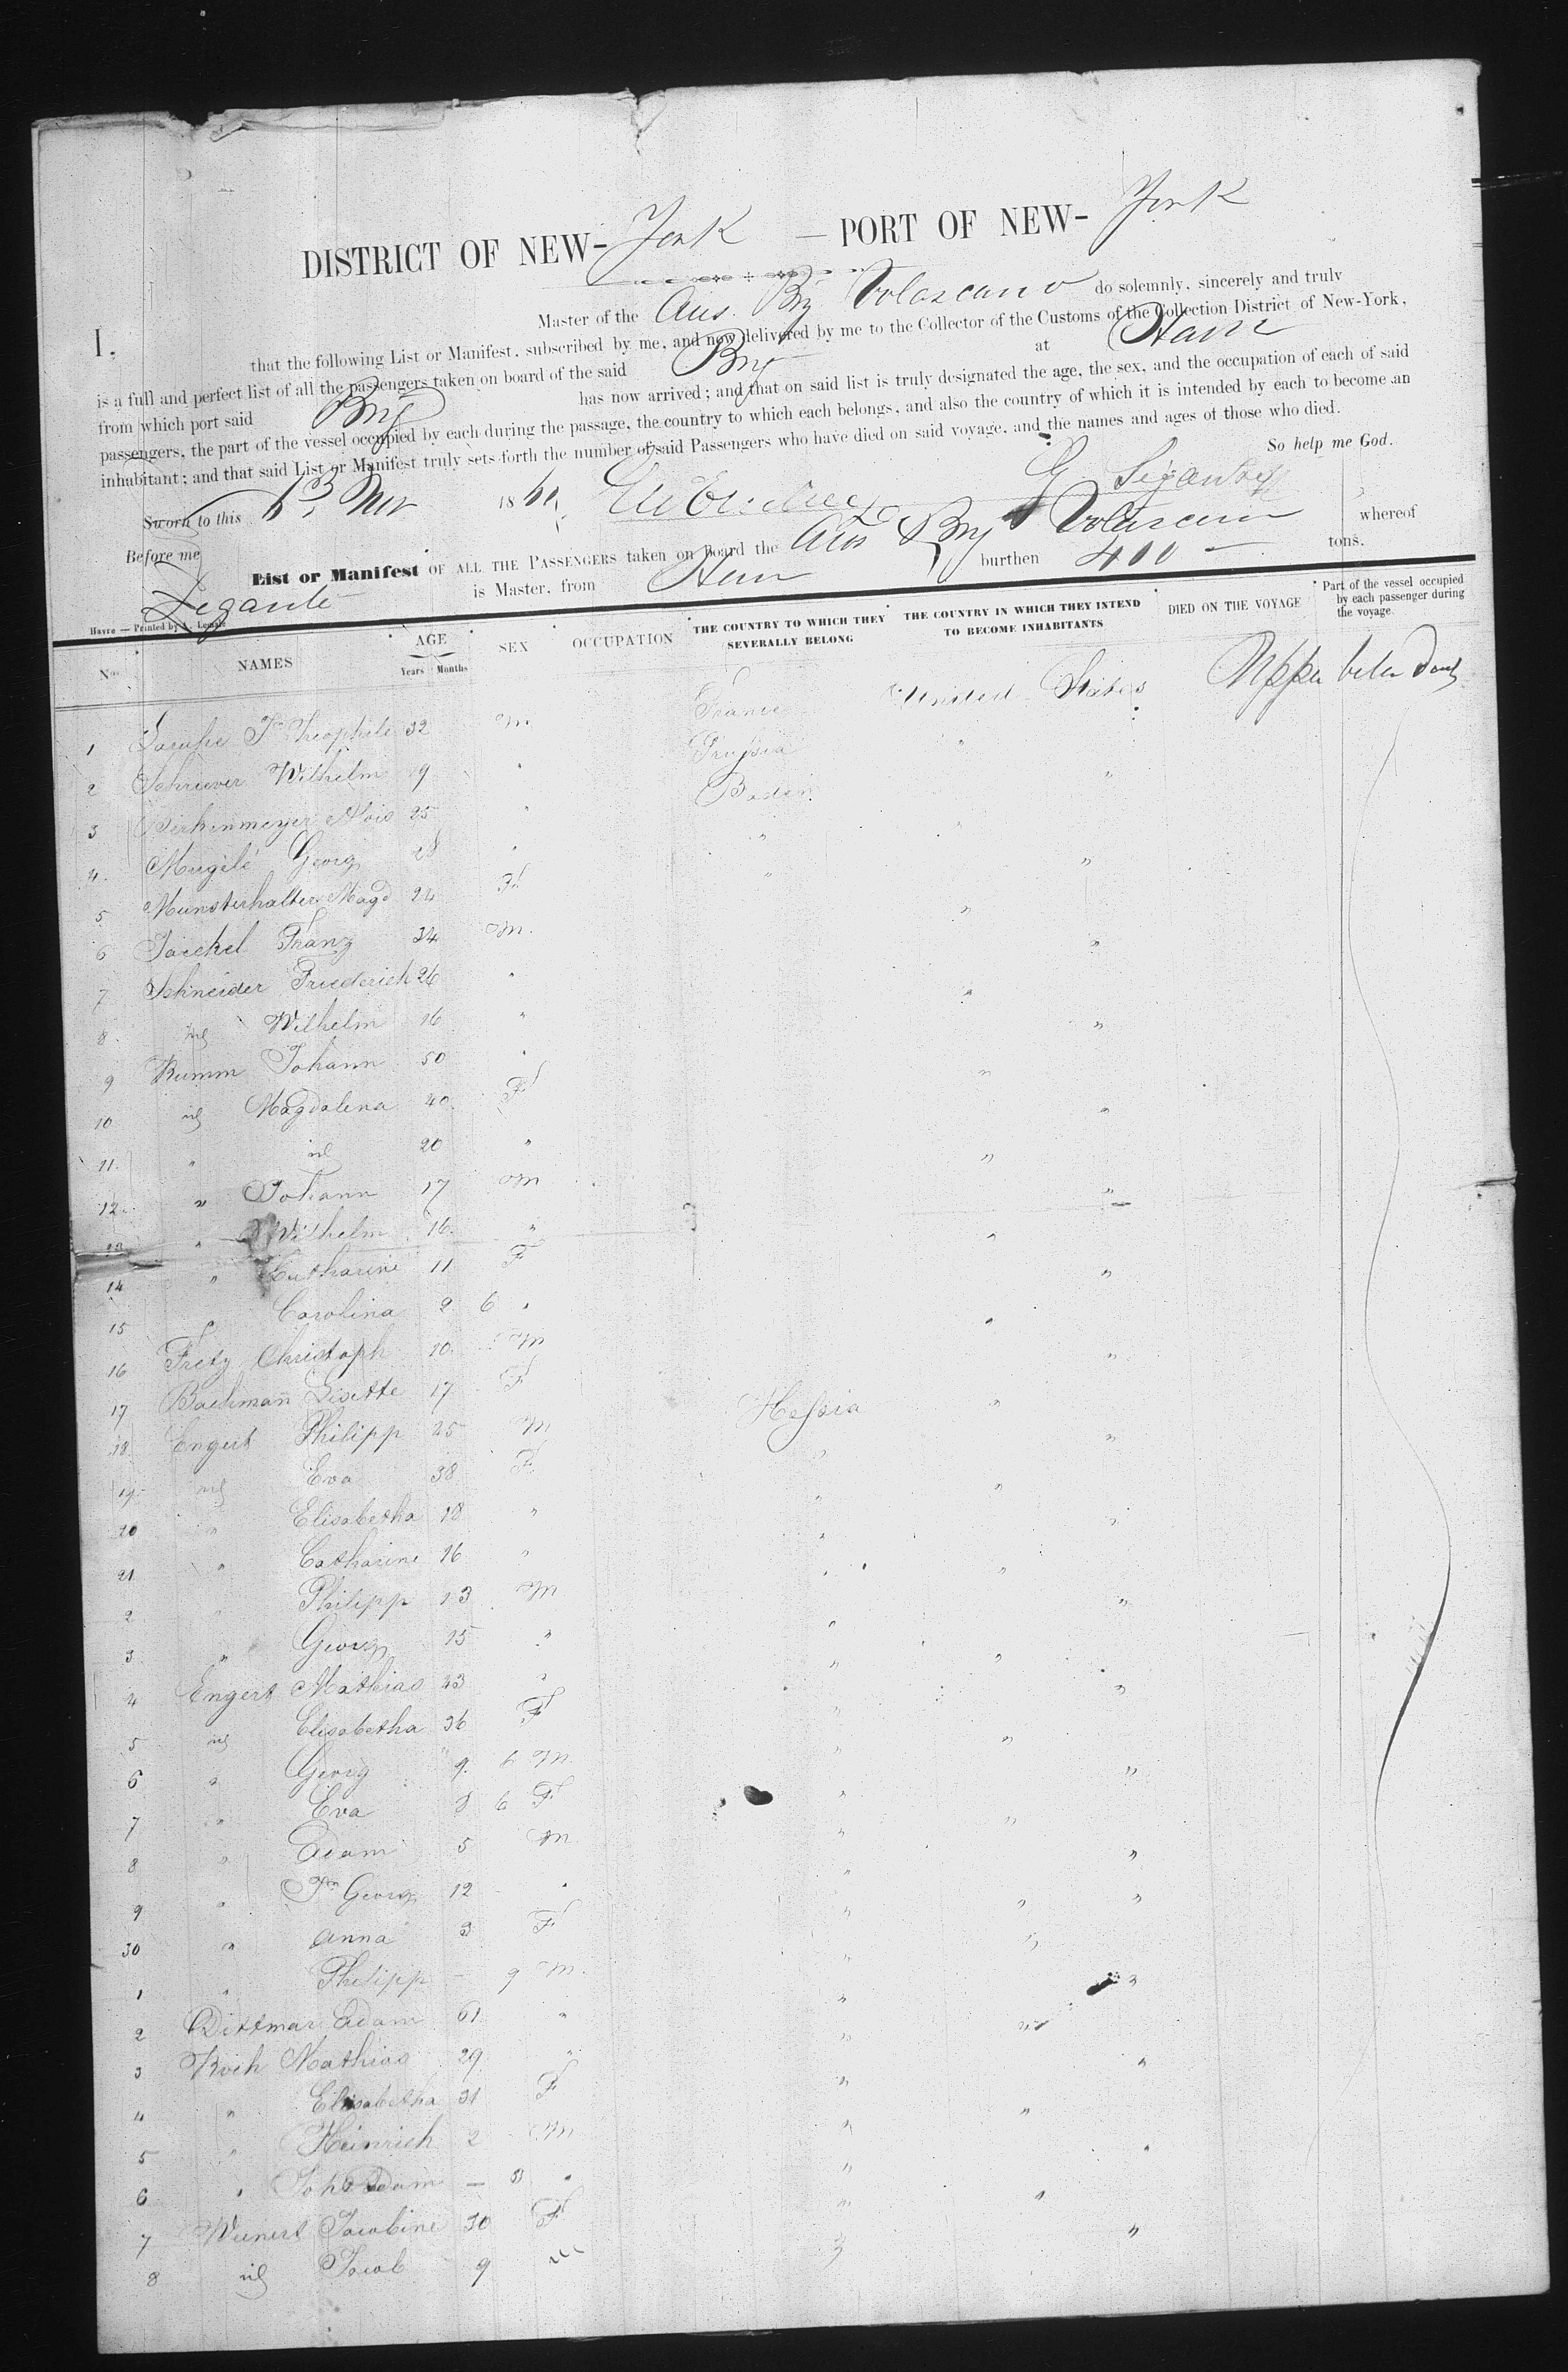 DISTRICT OF NEW-York — PORT OF NEW-York
I. Master of the Aus. Brig do solemnly, sincerely and truly
that the following List or Manifest, subscribed by me, and now delivered by me to the Collector of the Customs of the Collection District of New-York,
is a full and perfect list of all the passengers taken on board of the said Brig at Havre
from which port said Brig has now arrived; and that on said list is truly designated the age, the sex, and the occupation of each of said
passengers, the part of the vessel occupied by each during the passage, the country to which each belongs, and also the country of which it is intended by each to become an
inhabitant; and that said List or Manifest truly sets forth the number of said Passengers who have died on said voyage, and the names and ages of those who died.
So help me God.
Sworn to this 186
Before me
List or Manifest OF ALL THE PASSENGERS taken on board the Aus Brig whereof
is Master, from burthen 400 — tons.
Havre — Printed by A. Lemale
No. NAMES AGE Years Months SEX OCCUPATION THE COUNTRY TO WHICH THEY SEVERALLY BELONG THE COUNTRY IN WHICH THEY INTEND TO BECOME INHABITANTS DIED ON THE VOYAGE Part of the vessel occupied by each passenger during the voyage.
1 Theophile 32 m. France United States
2 Schriever Wilhelm 19 " Prussia "
3 Birkenmeyer Alois 25 " Baden "
4. Georg 28 " " "
5 Munsterhalter Magd 24 F. " "
6 Jaeckel Franz 34 m. "
7 Schneider Friederich 26 " "
8 Wilhelm 16 " "
9 Rumm Johann 50 " "
10 Magdalena 40. F "
11. " 20 " "
12. " Johann 17 m "
13 " Wilhelm 16. " "
14 " Catharine 11 F "
15 " Carolina 2 6 " "
16 Fretz Christoph 10. m "
17 Bachmann Lisette 17 F Hessia "
18 Engert Philipp 45 m " "
19 Eva 38 F " "
20 " Elisabetha 18 " " "
21 " Catharine 16 " " "
2 " Philipp 13 m " "
3 " Georg 15 " " "
4 Engert Mathias 43 " " "
5 Elisabetha 36 F " "
6 " Georg 9. 6 m. " "
7 " Eva 8 6 F " "
8 " Adam 5 m " "
9 " Georg 12 " " "
30 " Anna 3 F " "
1 " Philipp — 9 m. " "
2 Dittmar Adam 61 " " "
3 Koch Mathias 29 " " "
4 " Elisabetha 31 F " "
5 " Heinrich 2 m " "
6 " Joh Adam — " "
7 Weinert Jacobine 30 F " "
8 Jacob 9 m "